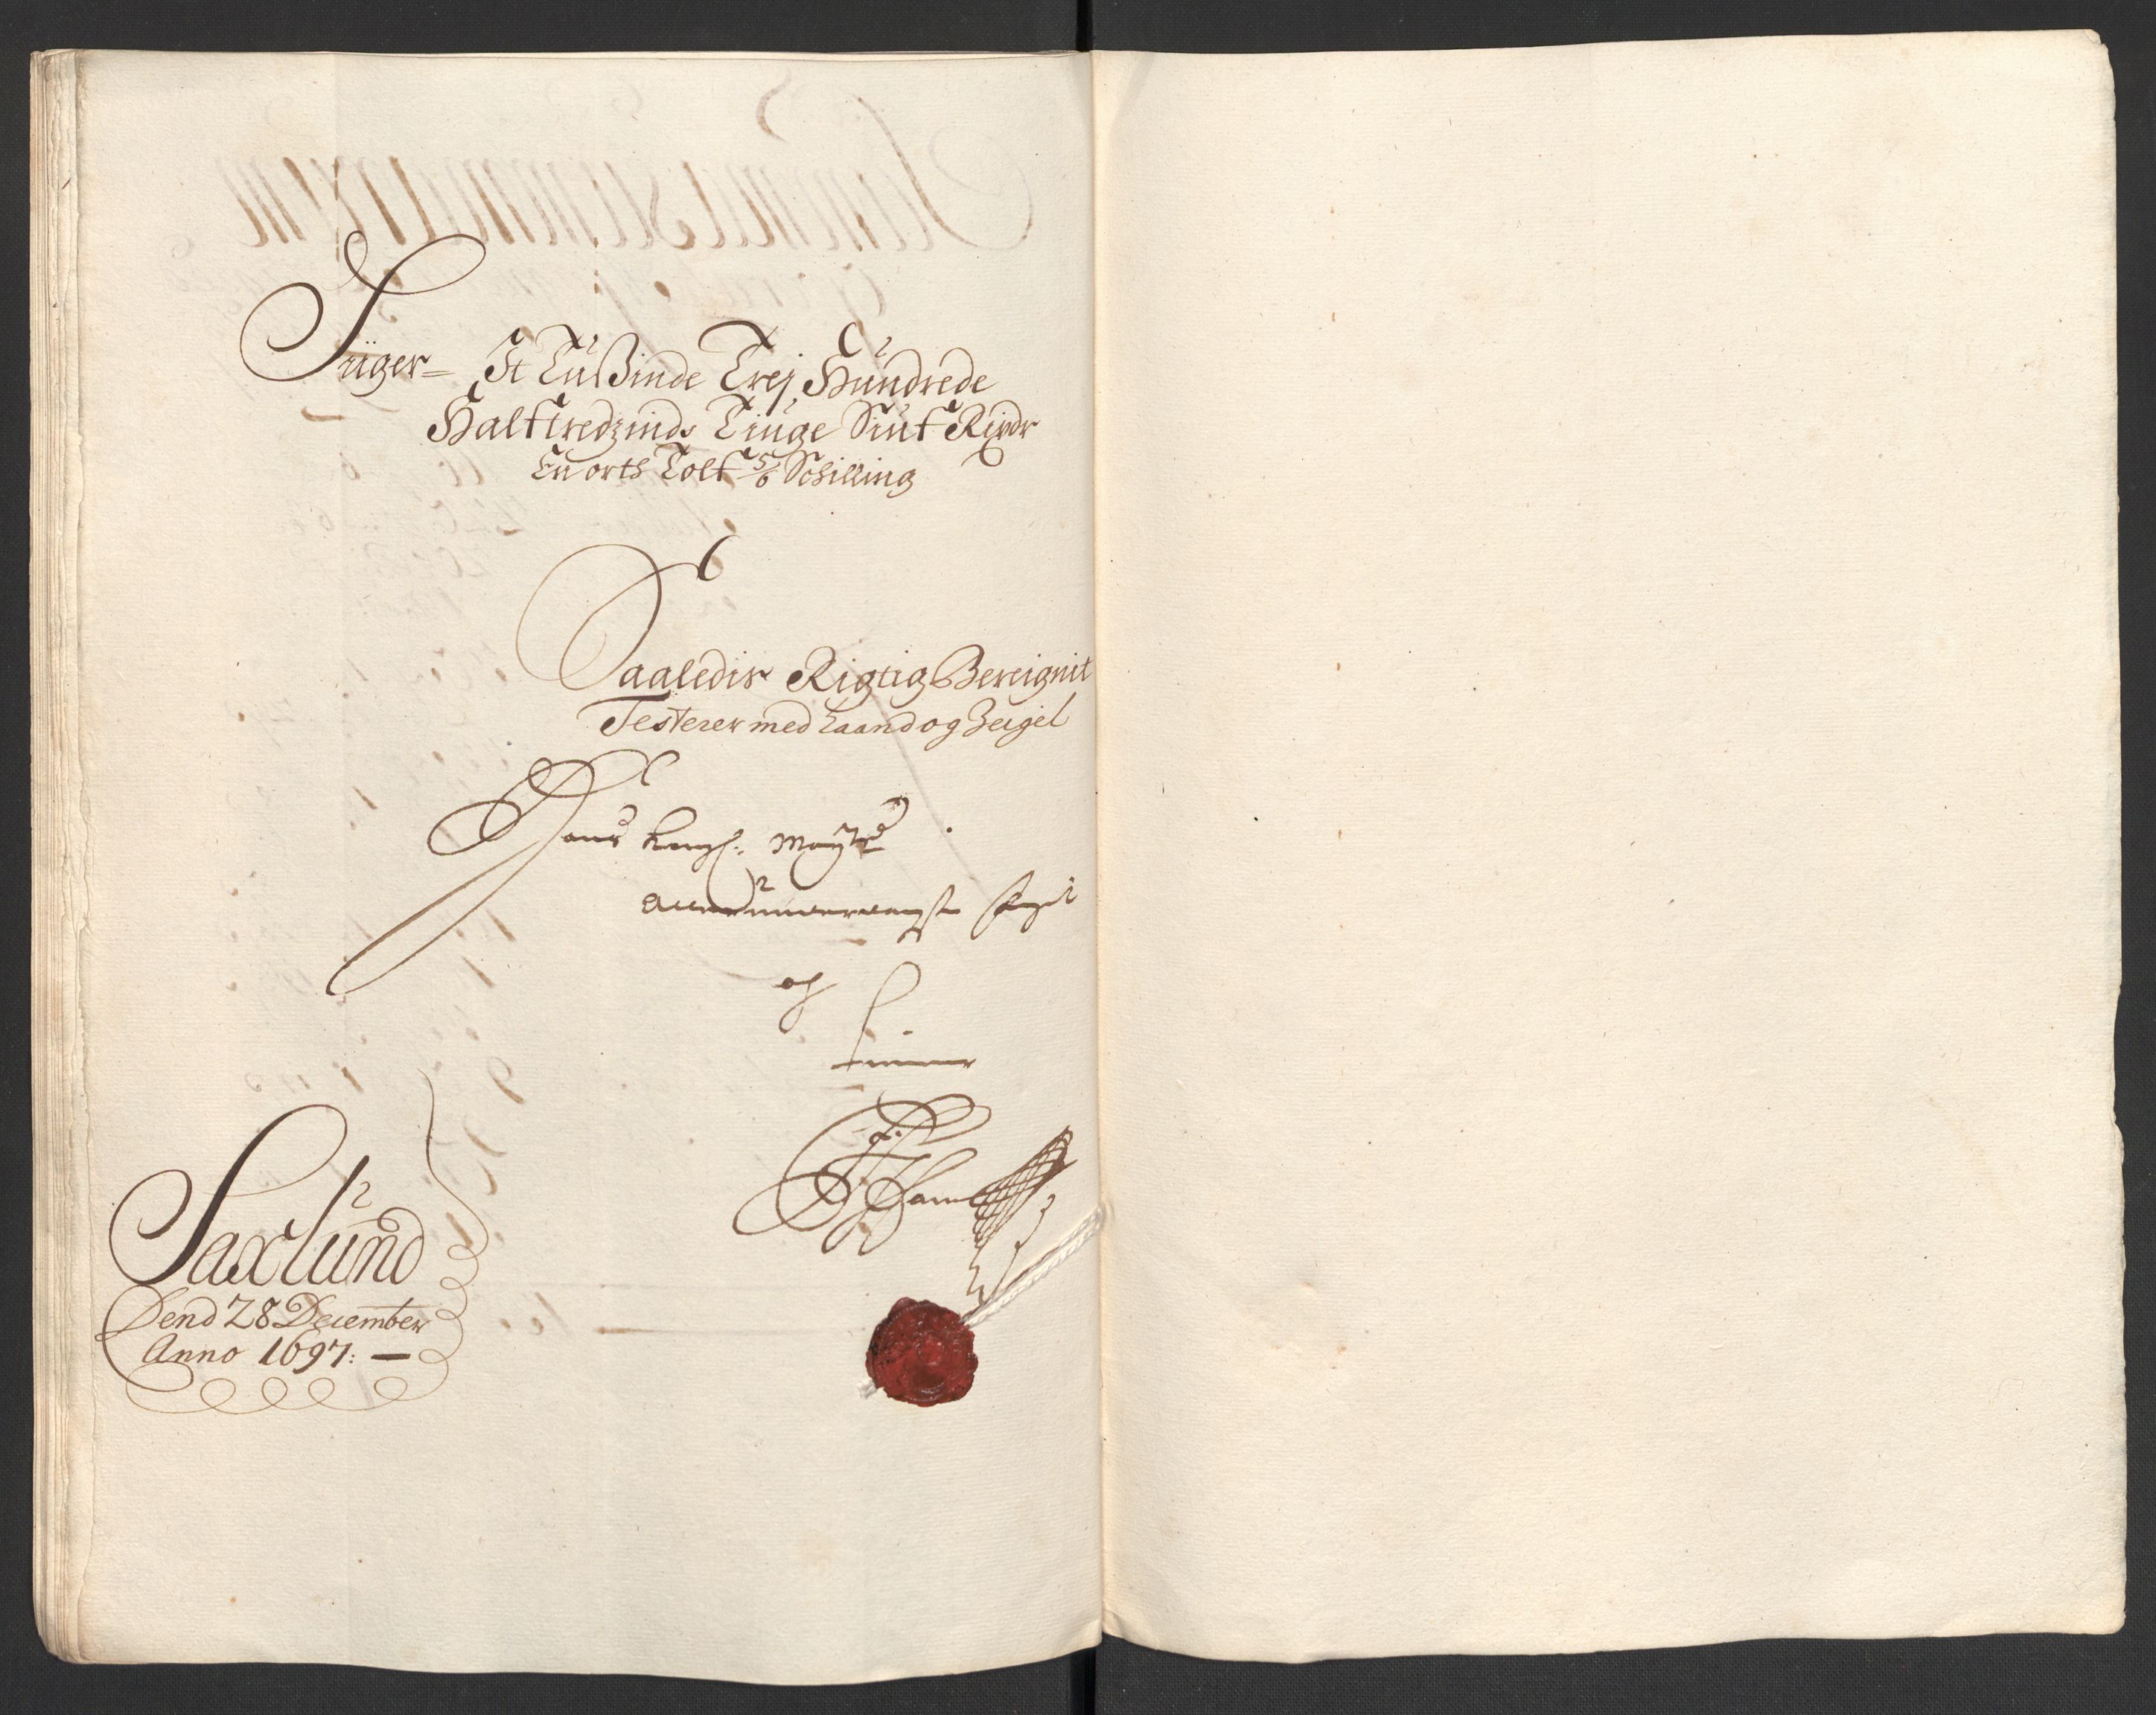 Siiger= Et Tußinde Trej Hundrede
Halftredzinds Tiuge Siuf Rixdr
En orth Tolf 5/6 Schilling
Saaledis Rigtig Bereignit
Testerer med haand og Zeigel
Hans Kongl: Mayts
og
Saxlund
Dend 28 December
Anno 1697: —